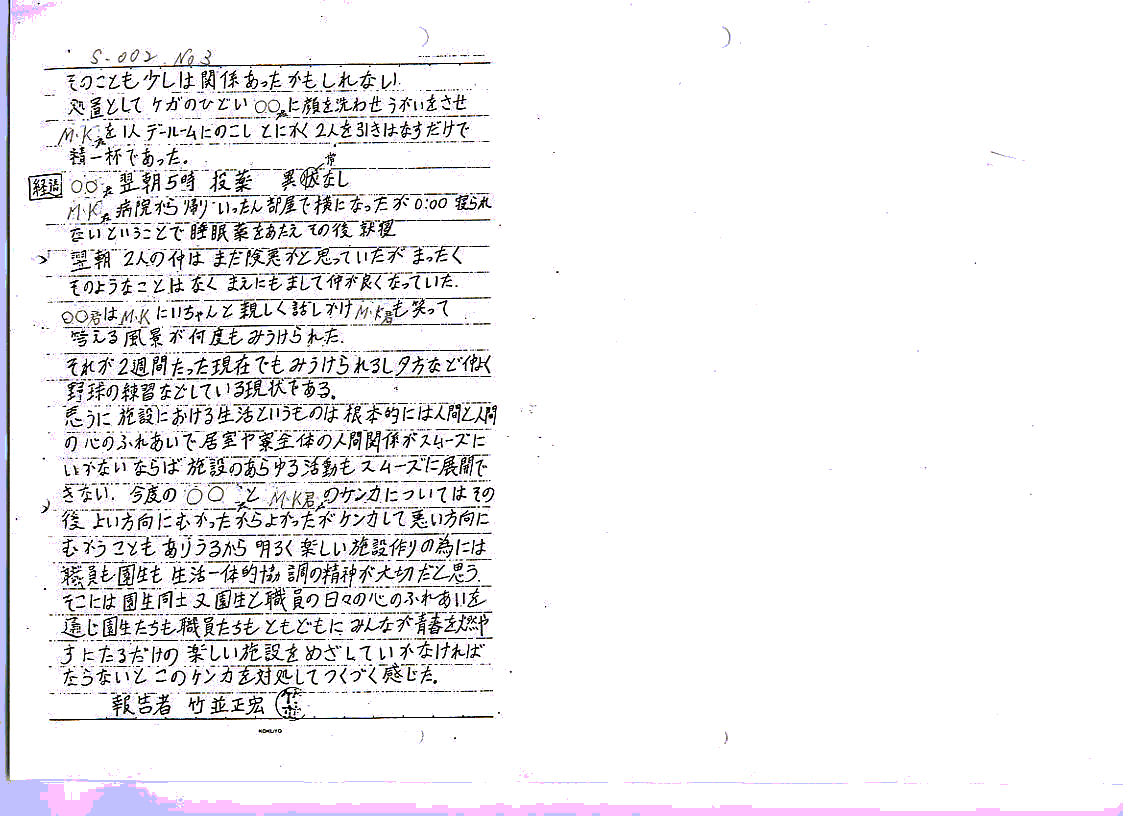 S-002 No 3
そのことも少しは関係あったかもしれない.
処置としてケガのひどい○○君に顔を洗わせうがいをさせ
M・K君を1人デールームにのこしとにかく2人を引きはなすだけで
精一杯であった。
常
経過 ○○君翌朝5時 投薬 異状なし
M・K君病院から帰りいったん部屋で横になったが0:00 寝られ
ないということで睡眠薬をあたえその後就寝
翌朝 2人の仲はまだ険悪かと思っていたがまったく
そのようなことはなくまえにもまして仲が良くなっていた.
○○君はM・Kにいちゃんと親しく話しかけM・K君も笑って
答える風景が何度もみうけられた.
それが2週間たった現在でもみうけられるし夕方など仲よく
野球の練習などしている現状である。
思うに施設における生活というものは根本的には人間と人間
の心のふれあいで居室や寮全体の人間関係がスムーズに
いかないならば施設のあらゆる活動もスムーズに展開で
きない. 今度の○○君とM・K君のケンカについてはその
後よい方向にむかったからよかったがケンカして悪い方向に
むかうこともありうるから明るく楽しい施設作りの為には
職員も園生も生活一体的協調の精神が大切だと思う.
そこには園生同士又園生と職員の日々の心のふれあいを
通じ園生たちも職員たちもともどもにみんなが青春を燃や
すにたるだけの楽しい施設をめざしていかなければ
ならないとこのケンカを対処してつくづく感じた。
報告者 竹並正宏
KOKUYO